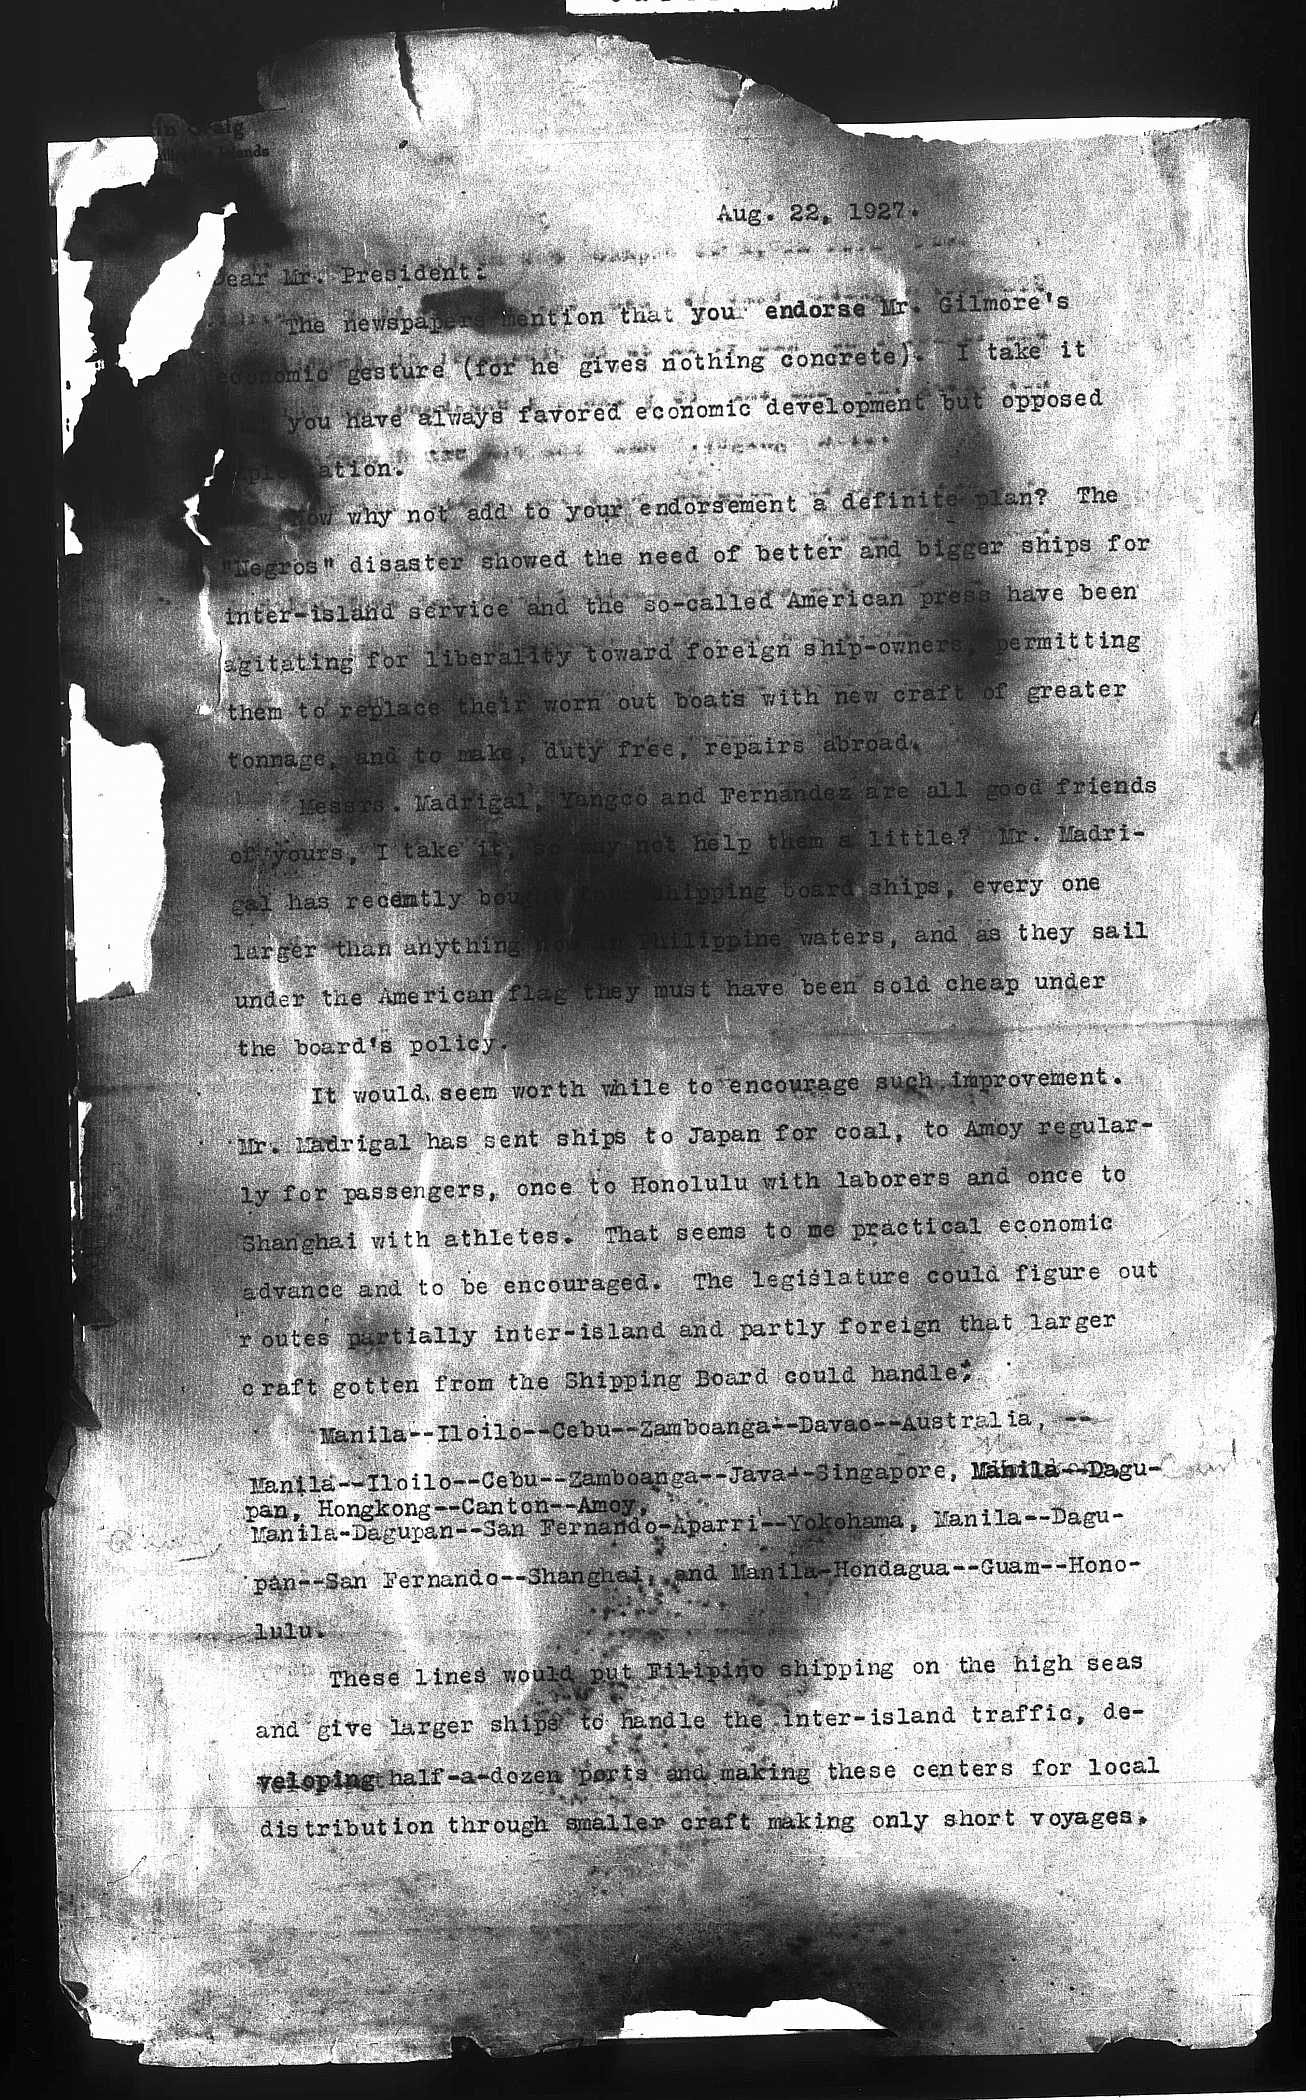 Aug. 22, 1927.
ear Mr. President:
The newspapers mention that you endorse Mr. Gilmore's
economic gesture (for he gives nothing concrete). I take it
you have always favored economic development but opposed
ation.
Now why not add to your endorsement a definite plan? The
"Negros" disaster showed the need of better and bigger ships for
inter-island service and the so-called American press have been
agitating for liberality toward foreign ship-owners, permitting
them to replace their worn out boats with new craft of greater
tonnage, and to make, duty free, repairs abroad.
Messrs. Madrigal, Yangco and Fernandez are all good friends
of yours, I take it, so why not help them a little? Mr. Madri-
gal has recently bought shipping board ships, every one
larger than anything now in Philippine waters, and as they sail
under the American flag they must have been sold cheap under
the board's policy.
It would seem worth while to encourage such improvement.
Mr. Madrigal has sent ships to Japan for coal, to Amoy regular-
ly for passengers, once to Honolulu with laborers and once to
Shanghai with athletes. That seems to me practical economic
advance and to be encouraged. The legislature could figure out
r outes partially inter-island and partly foreign that larger
craft gotten from the Shipping Board could handle:
Manila--Iloilo--Cebu--Zamboanga--Davao--Australia, --
Manila--Iloilo--Cebu--Zamboanga--Java--Singapore, Manila--Dagu-
pan, Hongkong--Canton--Amoy,
Manila-Dagupan--San Fernando-Aparri--Yokohama, Manila--Dagu-
pan--San Fernando--Shanghai, and Manila-Hondagua--Guam--Hono-
lulu.
These lines would put Filipino shipping on the high seas
and give larger ships to handle the inter-island traffic, de-
veloping half-a-dozen ports and making these centers for local
distribution through smaller craft making only short voyages.